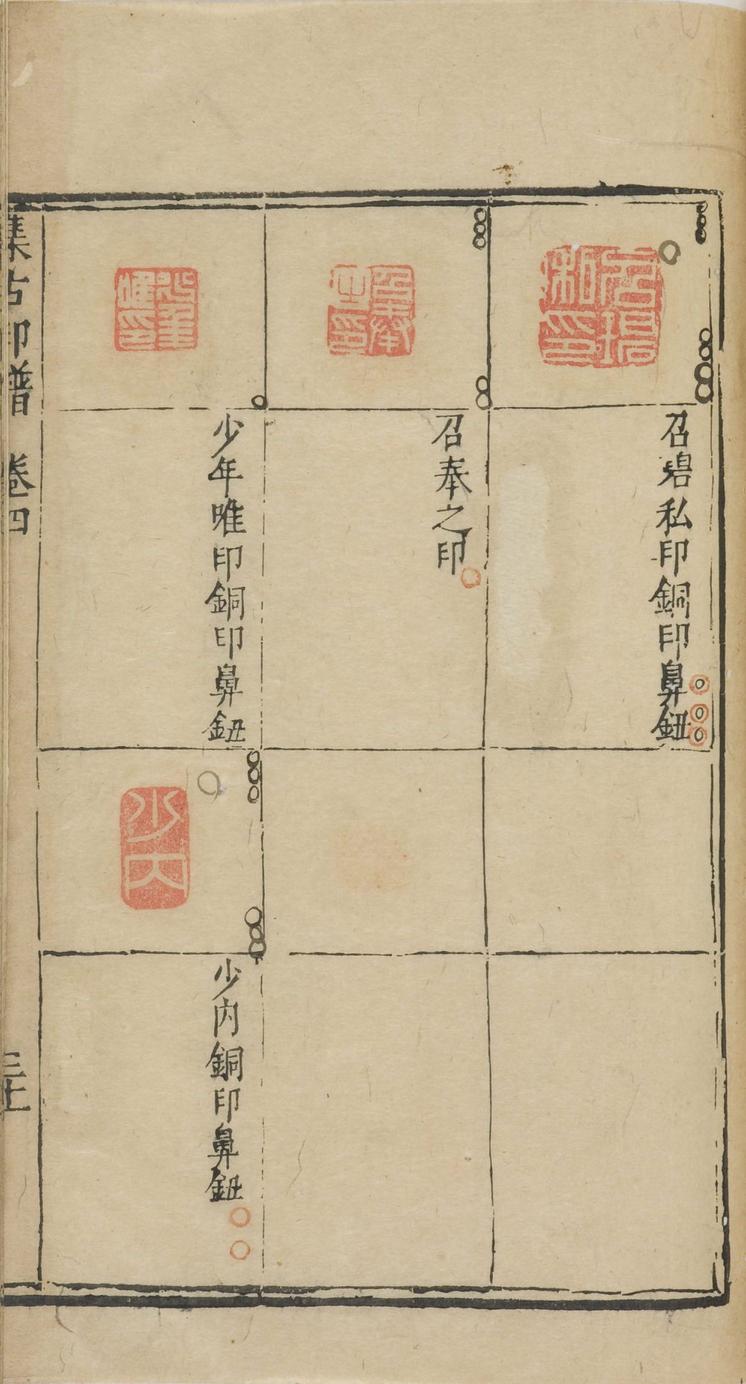 召碧私印銅印鼻鈕
召奉之印
少年唯印銅印鼻鈕
少内
少内銅印鼻鈕
集古印譜 卷四